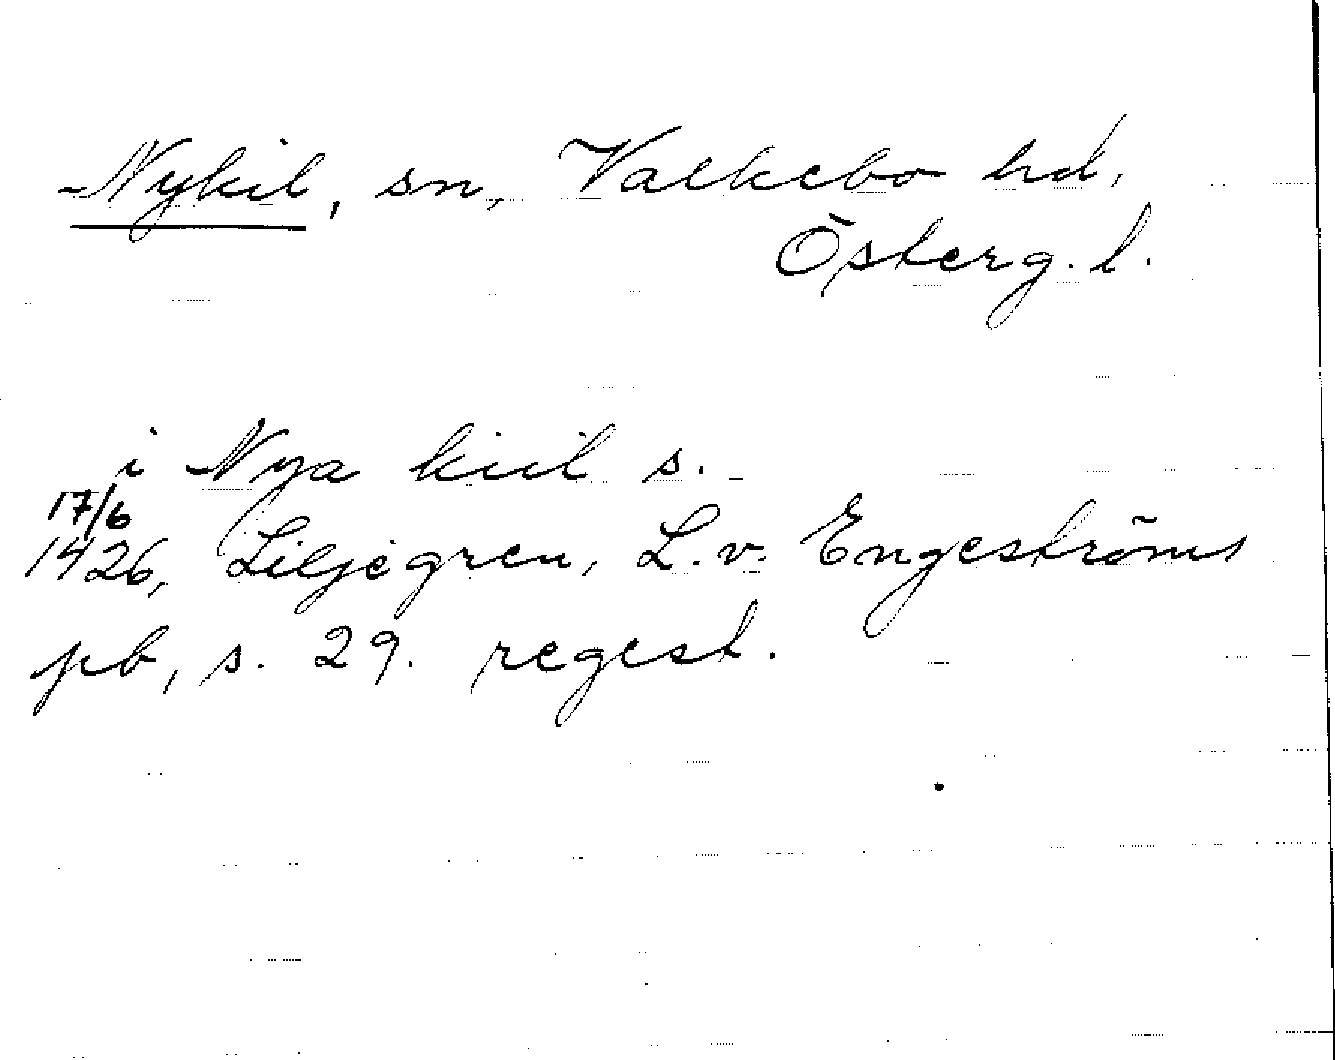 Nykil, sn, Valkebo hd,
Österg. l.
i Nya kiil s.
17/6
1426, Liljegren, L. v. Engeströms
pb, s. 29. regest.